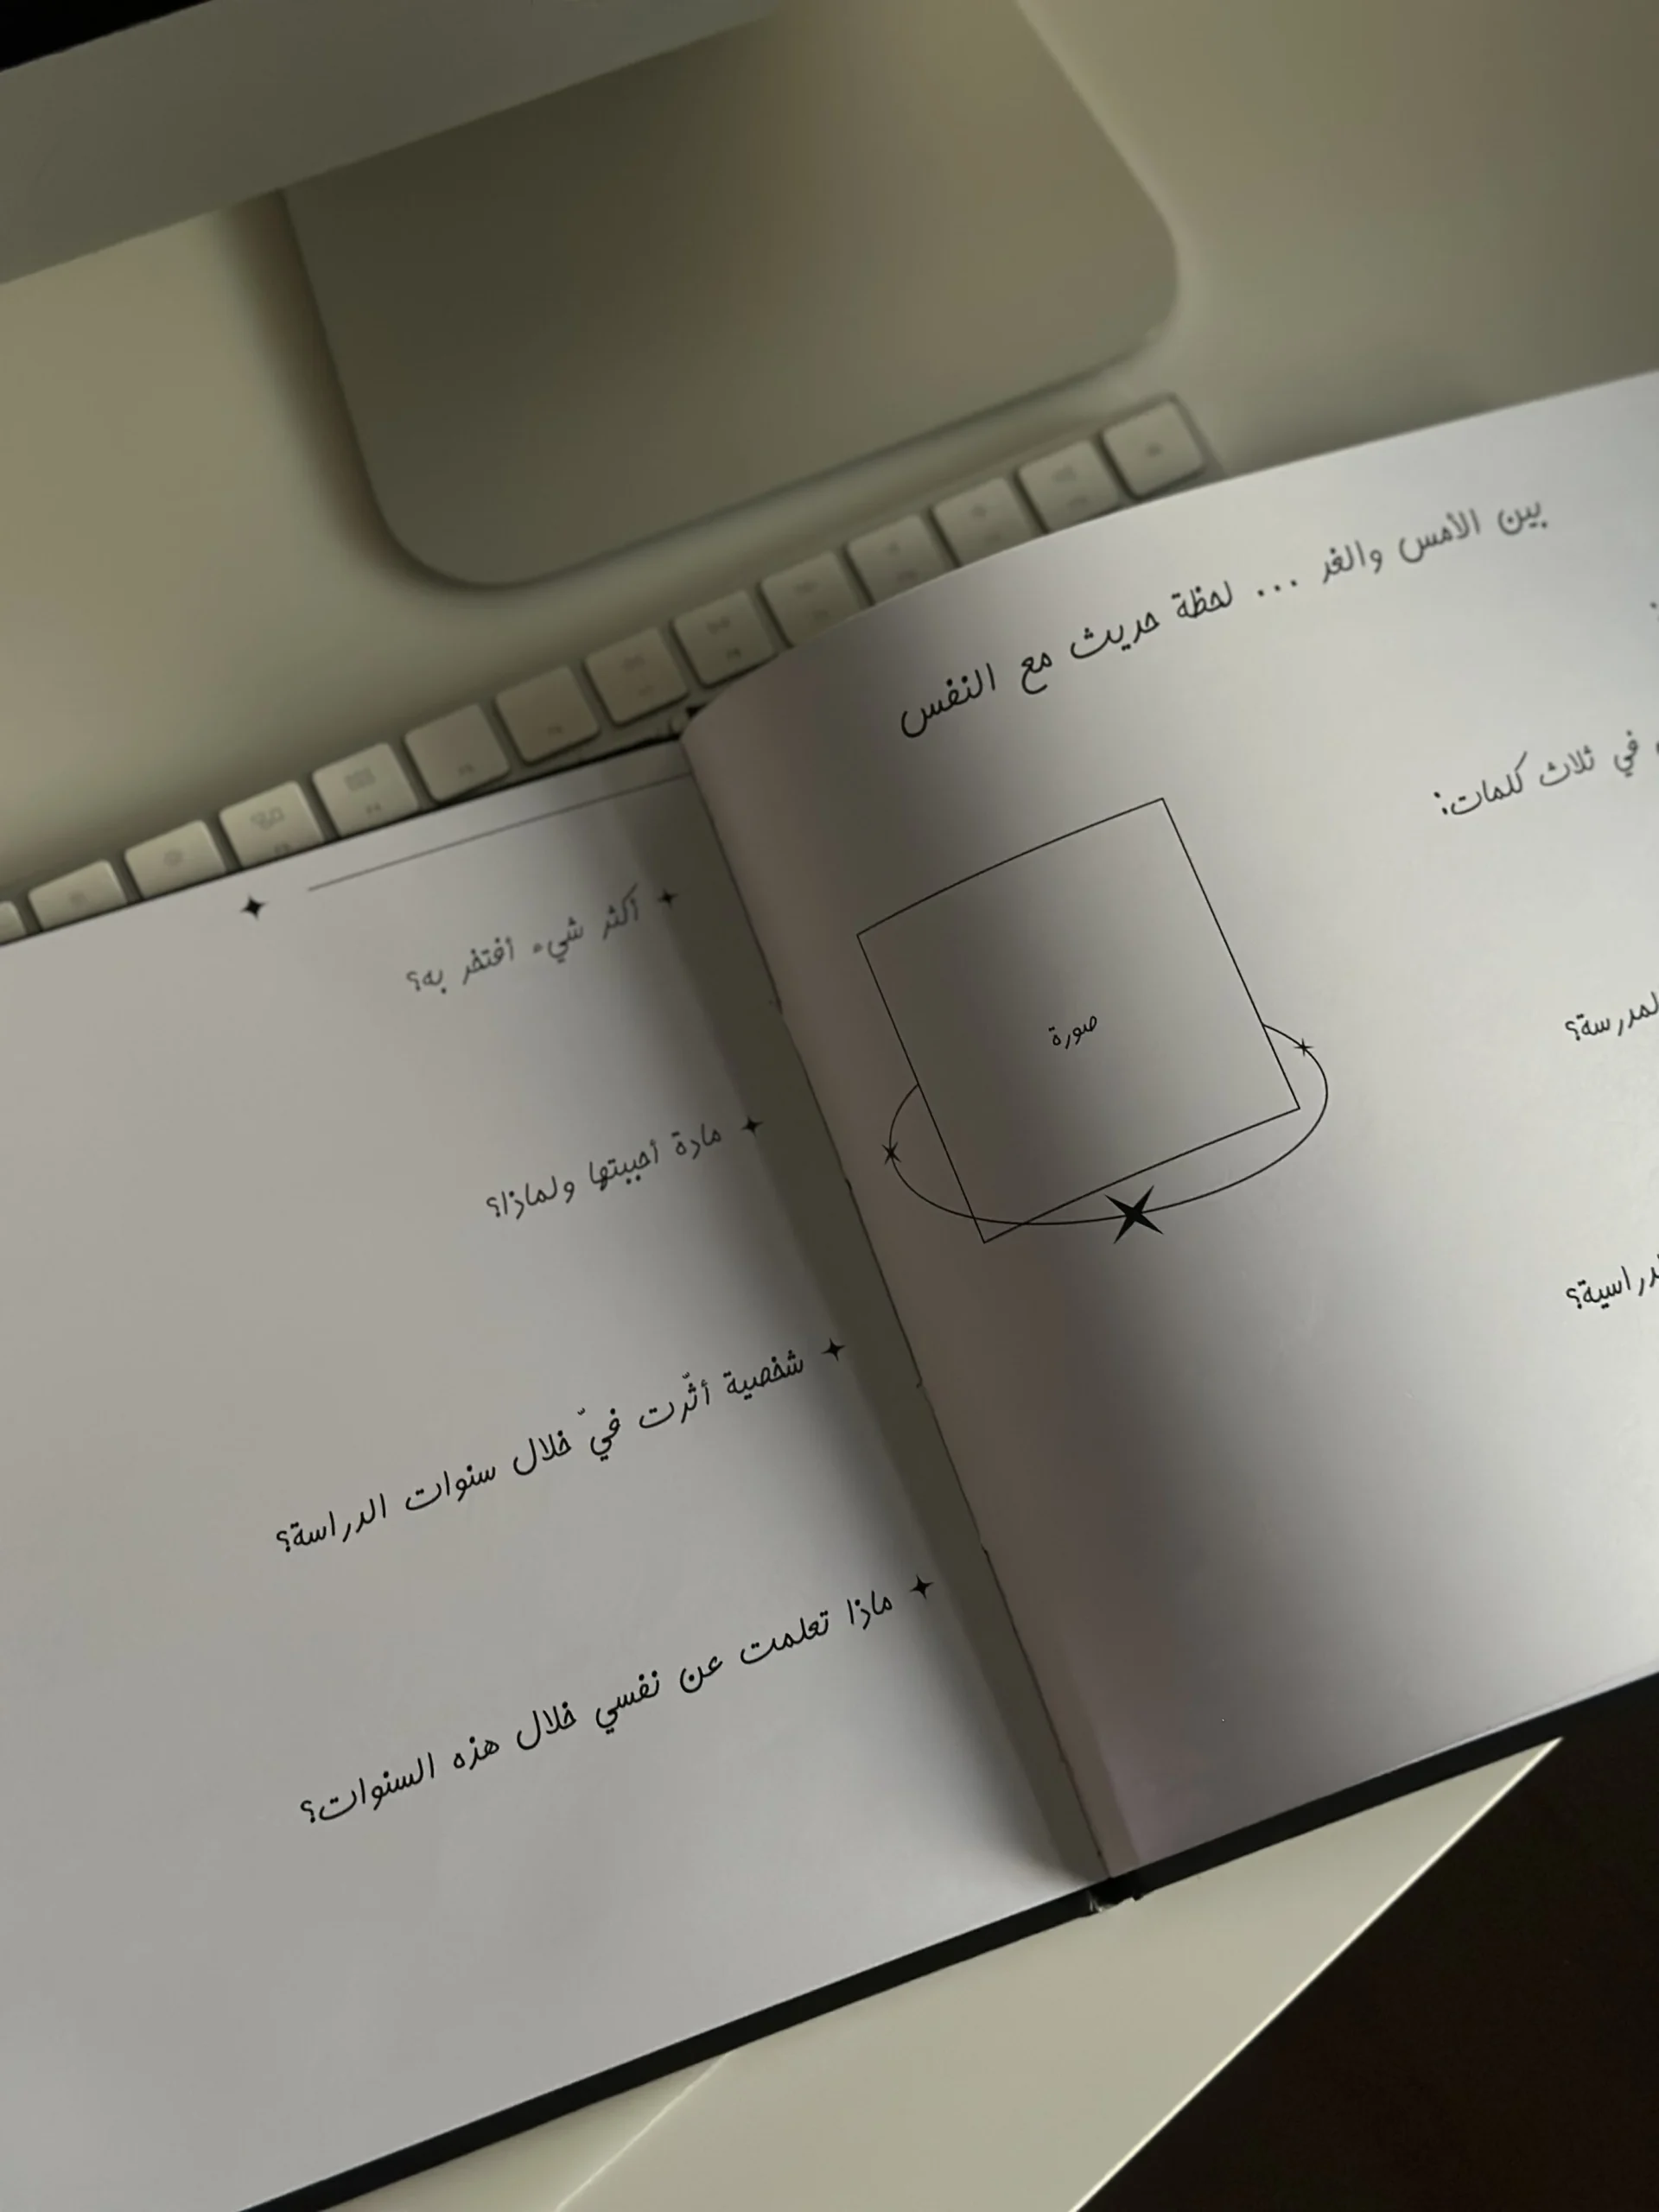 بين الأمس والغد ... لحظة حديث مع النفس
في ثلاث كلمات:
صورة
أكثر شيء أفتخر به؟
مادة أحببتها ولماذا؟
شخصية أثّرت فيّ خلال سنوات الدراسة؟
ماذا تعلمت عن نفسي خلال هذه السنوات؟